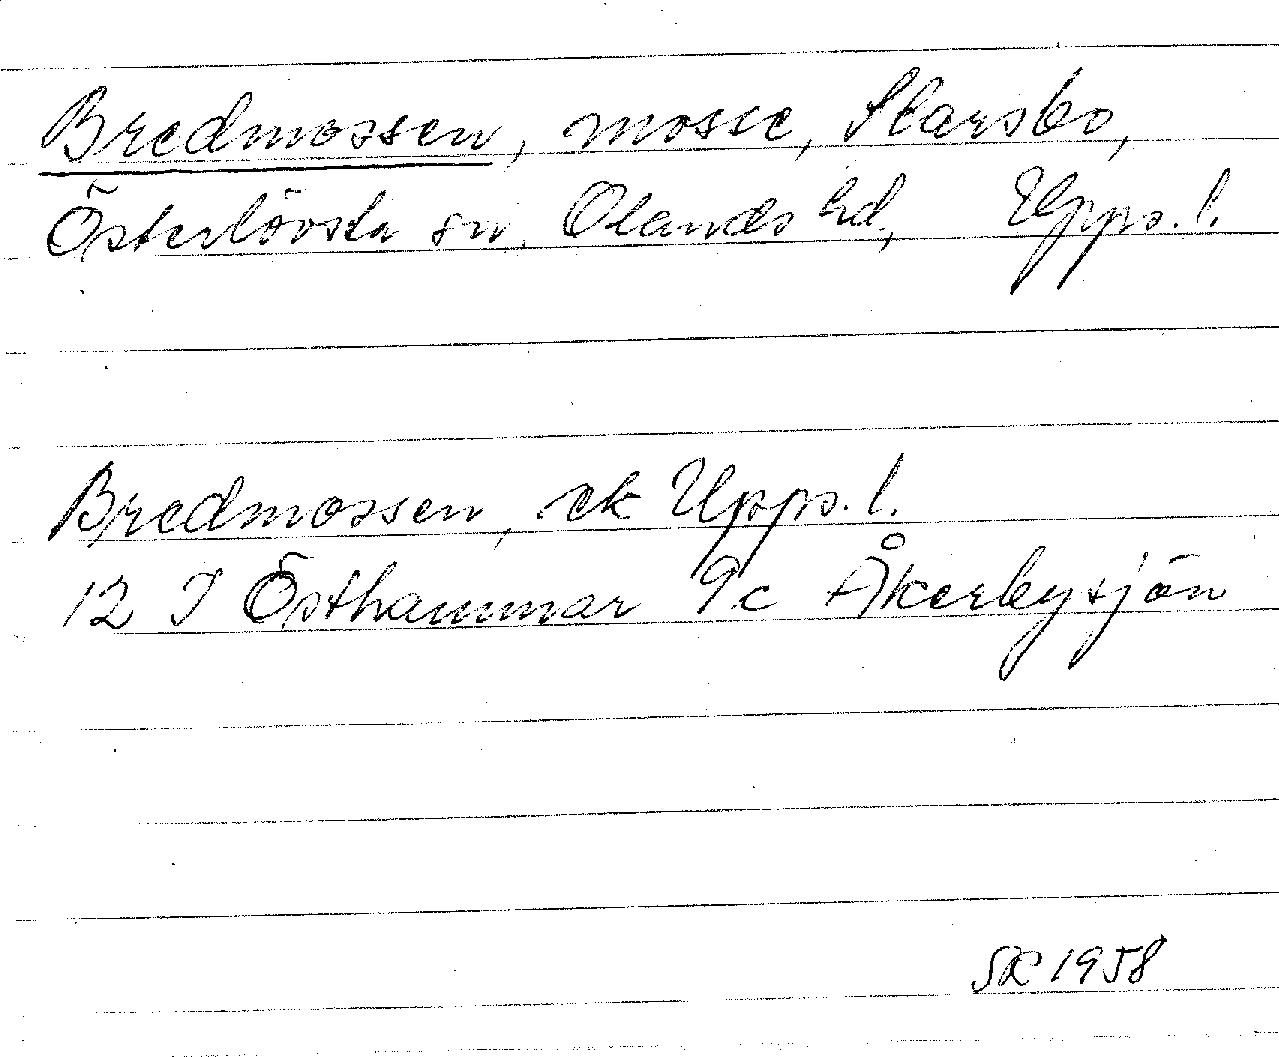 Bredmossen, mosse, Slarsbo,
Österlövsta sn, Olands hd, Upps. l.
Bredmossen, ek Upps. l.
12 I Östhammar 9c Åkerbysjön
SR 1958